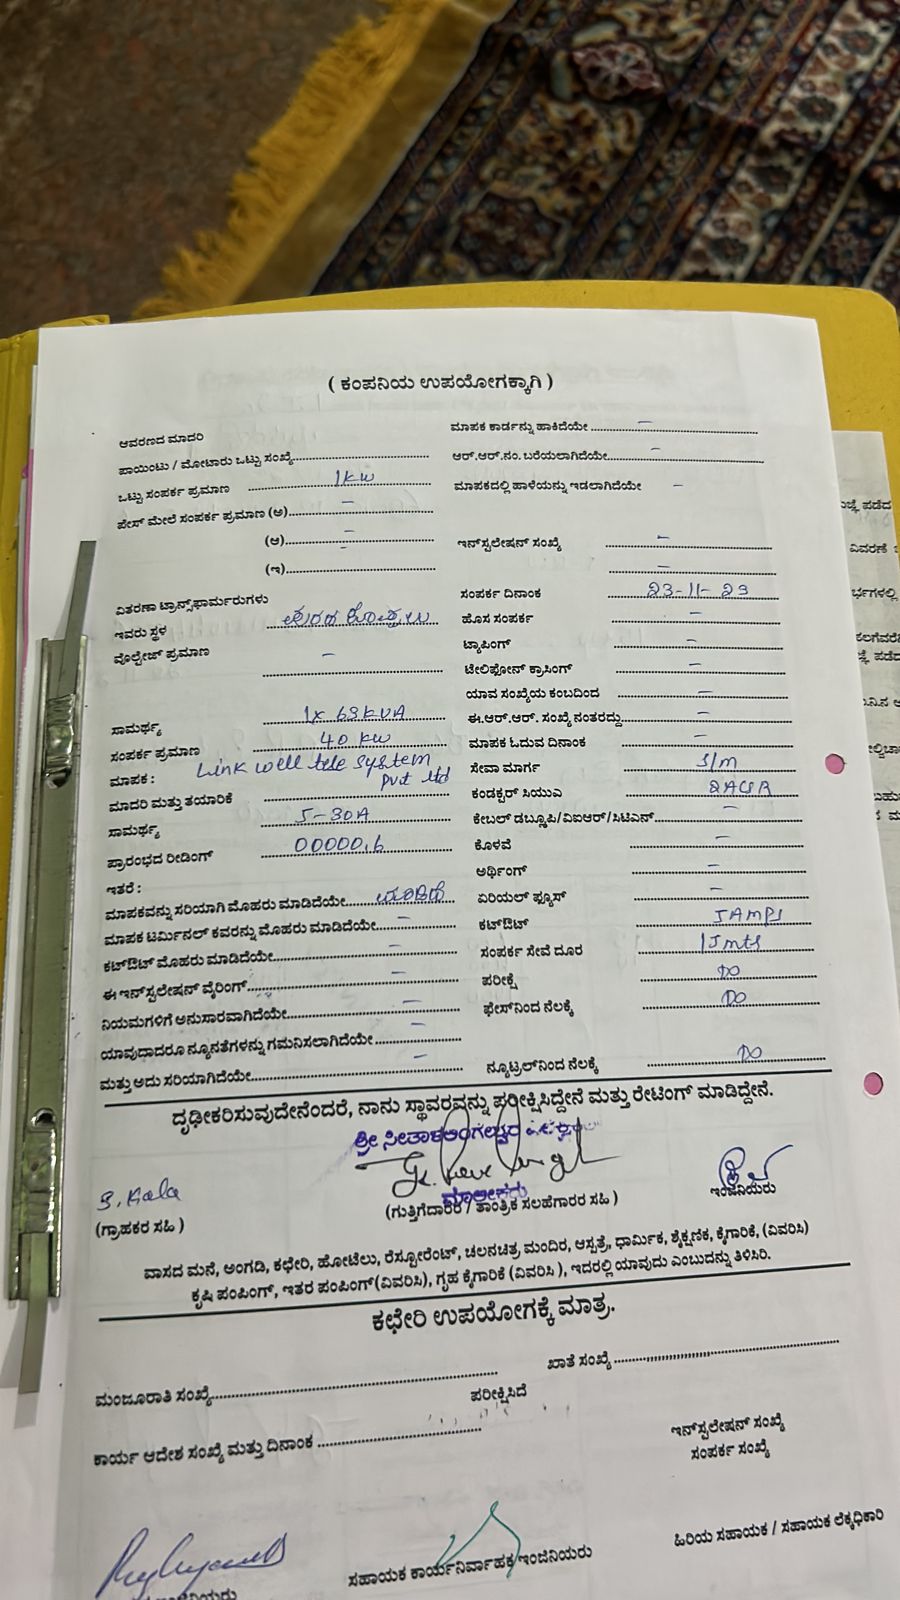 ( ಕಂಪನಿಯ ಉಪಯೋಗಕ್ಕಾಗಿ )
ಆವರಣದ ಮಾದರಿ
ಪಾಯಿಂಟು / ಮೋಟಾರು ಒಟ್ಟು ಸಂಖ್ಯೆ
ಒಟ್ಟು ಸಂಪರ್ಕ ಪ್ರಮಾಣ 1KW
ಪೇಸ್ ಮೇಲೆ ಸಂಪರ್ಕ ಪ್ರಮಾಣ (ಅ) –
(ಆ) –
(ಇ)
ವಿತರಣಾ ಟ್ರಾನ್ಸ್‌ಫಾರ್ಮರುಗಳು
ಇವರು ಸ್ಥಳ
ವೋಲ್ಟೇಜ್ ಪ್ರಮಾಣ –
ಸಾಮರ್ಥ್ಯ 1x 63KVA
ಸಂಪರ್ಕ ಪ್ರಮಾಣ 40 KW
ಮಾಪಕ : Link well tele system
Pvt ltd
ಮಾದರಿ ಮತ್ತು ತಯಾರಿಕೆ
ಸಾಮರ್ಥ್ಯ 5-30A
ಪ್ರಾರಂಭದ ರೀಡಿಂಗ್ 00000.6
ಇತರೆ :
ಮಾಪಕವನ್ನು ಸರಿಯಾಗಿ ಮೊಹರು ಮಾಡಿದೆಯೇ
ಮಾಪಕ ಟರ್ಮಿನಲ್ ಕವರನ್ನು ಮೊಹರು ಮಾಡಿದೆಯೇ –
ಕಟ್‌ಔಟ್ ಮೊಹರು ಮಾಡಿದೆಯೇ –
ಈ ಇನ್‌ಸ್ಟಲೇಷನ್ ವೈರಿಂಗ್ –
ನಿಯಮಗಳಿಗೆ ಅನುಸಾರವಾಗಿದೆಯೇ –
ಯಾವುದಾದರೂ ನ್ಯೂನತೆಗಳನ್ನು ಗಮನಿಸಲಾಗಿದೆಯೇ –
ಮತ್ತು ಅದು ಸರಿಯಾಗಿದೆಯೇ –
ಮಾಪಕ ಕಾರ್ಡನ್ನು ಹಾಕಿದೆಯೇ –
ಆರ್.ಆರ್.ನಂ. ಬರೆಯಲಾಗಿದೆಯೇ –
ಮಾಪಕದಲ್ಲಿ ಹಾಳೆಯನ್ನು ಇಡಲಾಗಿದೆಯೇ –
ಇನ್‌ಸ್ಟಲೇಷನ್ ಸಂಖ್ಯೆ –
–
ಸಂಪರ್ಕ ದಿನಾಂಕ 23-11-23
ಹೊಸ ಸಂಪರ್ಕ –
ಟ್ಯಾಪಿಂಗ್ –
ಟೇಲಿಫೋನ್ ಕ್ರಾಸಿಂಗ್ –
ಯಾವ ಸಂಖ್ಯೆಯ ಕಂಬದಿಂದ –
ಈ.ಆರ್.ಆರ್. ಸಂಖ್ಯೆ ನಂತರದ್ದು –
ಮಾಪಕ ಓದುವ ದಿನಾಂಕ –
ಸೇವಾ ಮಾರ್ಗ S/m
ಕಂಡಕ್ಟರ್ ಸಿಯುಎ
ಕೇಬಲ್ ಡಬ್ಲೂಪಿ/ವಿಐಆರ್/ಸಿಟಿಎಸ್ –
ಕೊಳವೆ –
ಅರ್ಥಿಂಗ್ –
ಏರಿಯಲ್ ಫ್ಯೂಸ್ –
ಕಟ್‌ಔಟ್ 5AMPS
ಸಂಪರ್ಕ ಸೇವೆ ದೂರ 15mts
ಪರೀಕ್ಷೆ DO
ಫೇಸ್‌ನಿಂದ ನೆಲಕ್ಕೆ DO
ನ್ಯೂಟ್ರಲ್‌ನಿಂದ ನೆಲಕ್ಕೆ DO
ದೃಢೀಕರಿಸುವುದೇನೆಂದರೆ, ನಾನು ಸ್ಥಾವರವನ್ನು ಪರೀಕ್ಷಿಸಿದ್ದೇನೆ ಮತ್ತು ರೇಟಿಂಗ್ ಮಾಡಿದ್ದೇನೆ.
ಶ್ರೀ
ಮಾಲೀಕರು
S. Kala
(ಗ್ರಾಹಕರ ಸಹಿ )
(ಗುತ್ತಿಗೆದಾರರ / ತಾಂತ್ರಿಕ ಸಲಹೆಗಾರರ ಸಹಿ )
ಇಂಜಿನಿಯರು
ವಾಸದ ಮನೆ, ಅಂಗಡಿ, ಕಛೇರಿ, ಹೋಟೆಲು, ರೆಸ್ಟೋರೆಂಟ್, ಚಲನಚಿತ್ರ ಮಂದಿರ, ಆಸ್ಪತ್ರೆ, ಧಾರ್ಮಿಕ, ಶೈಕ್ಷಣಿಕ, ಕೈಗಾರಿಕೆ, (ವಿವರಿಸಿ)
ಕೃಷಿ ಪಂಪಿಂಗ್, ಇತರ ಪಂಪಿಂಗ್(ವಿವರಿಸಿ), ಗೃಹ ಕೈಗಾರಿಕೆ (ವಿವರಿಸಿ ), ಇದರಲ್ಲಿ ಯಾವುದು ಎಂಬುದನ್ನು ತಿಳಿಸಿರಿ.
ಕಛೇರಿ ಉಪಯೋಗಕ್ಕೆ ಮಾತ್ರ.
ಮಂಜೂರಾತಿ ಸಂಖ್ಯೆ
ಖಾತೆ ಸಂಖ್ಯೆ
ಪರೀಕ್ಷಿಸಿದೆ
ಕಾರ್ಯ ಆದೇಶ ಸಂಖ್ಯೆ ಮತ್ತು ದಿನಾಂಕ
ಇನ್‌ಸ್ಟಲೇಷನ್ ಸಂಖ್ಯೆ
ಸಂಪರ್ಕ ಸಂಖ್ಯೆ
ಸಹಾಯಕ ಕಾರ್ಯನಿರ್ವಾಹಕ ಇಂಜಿನಿಯರು
ಹಿರಿಯ ಸಹಾಯಕ / ಸಹಾಯಕ ಲೆಕ್ಕಧಿಕಾರಿ